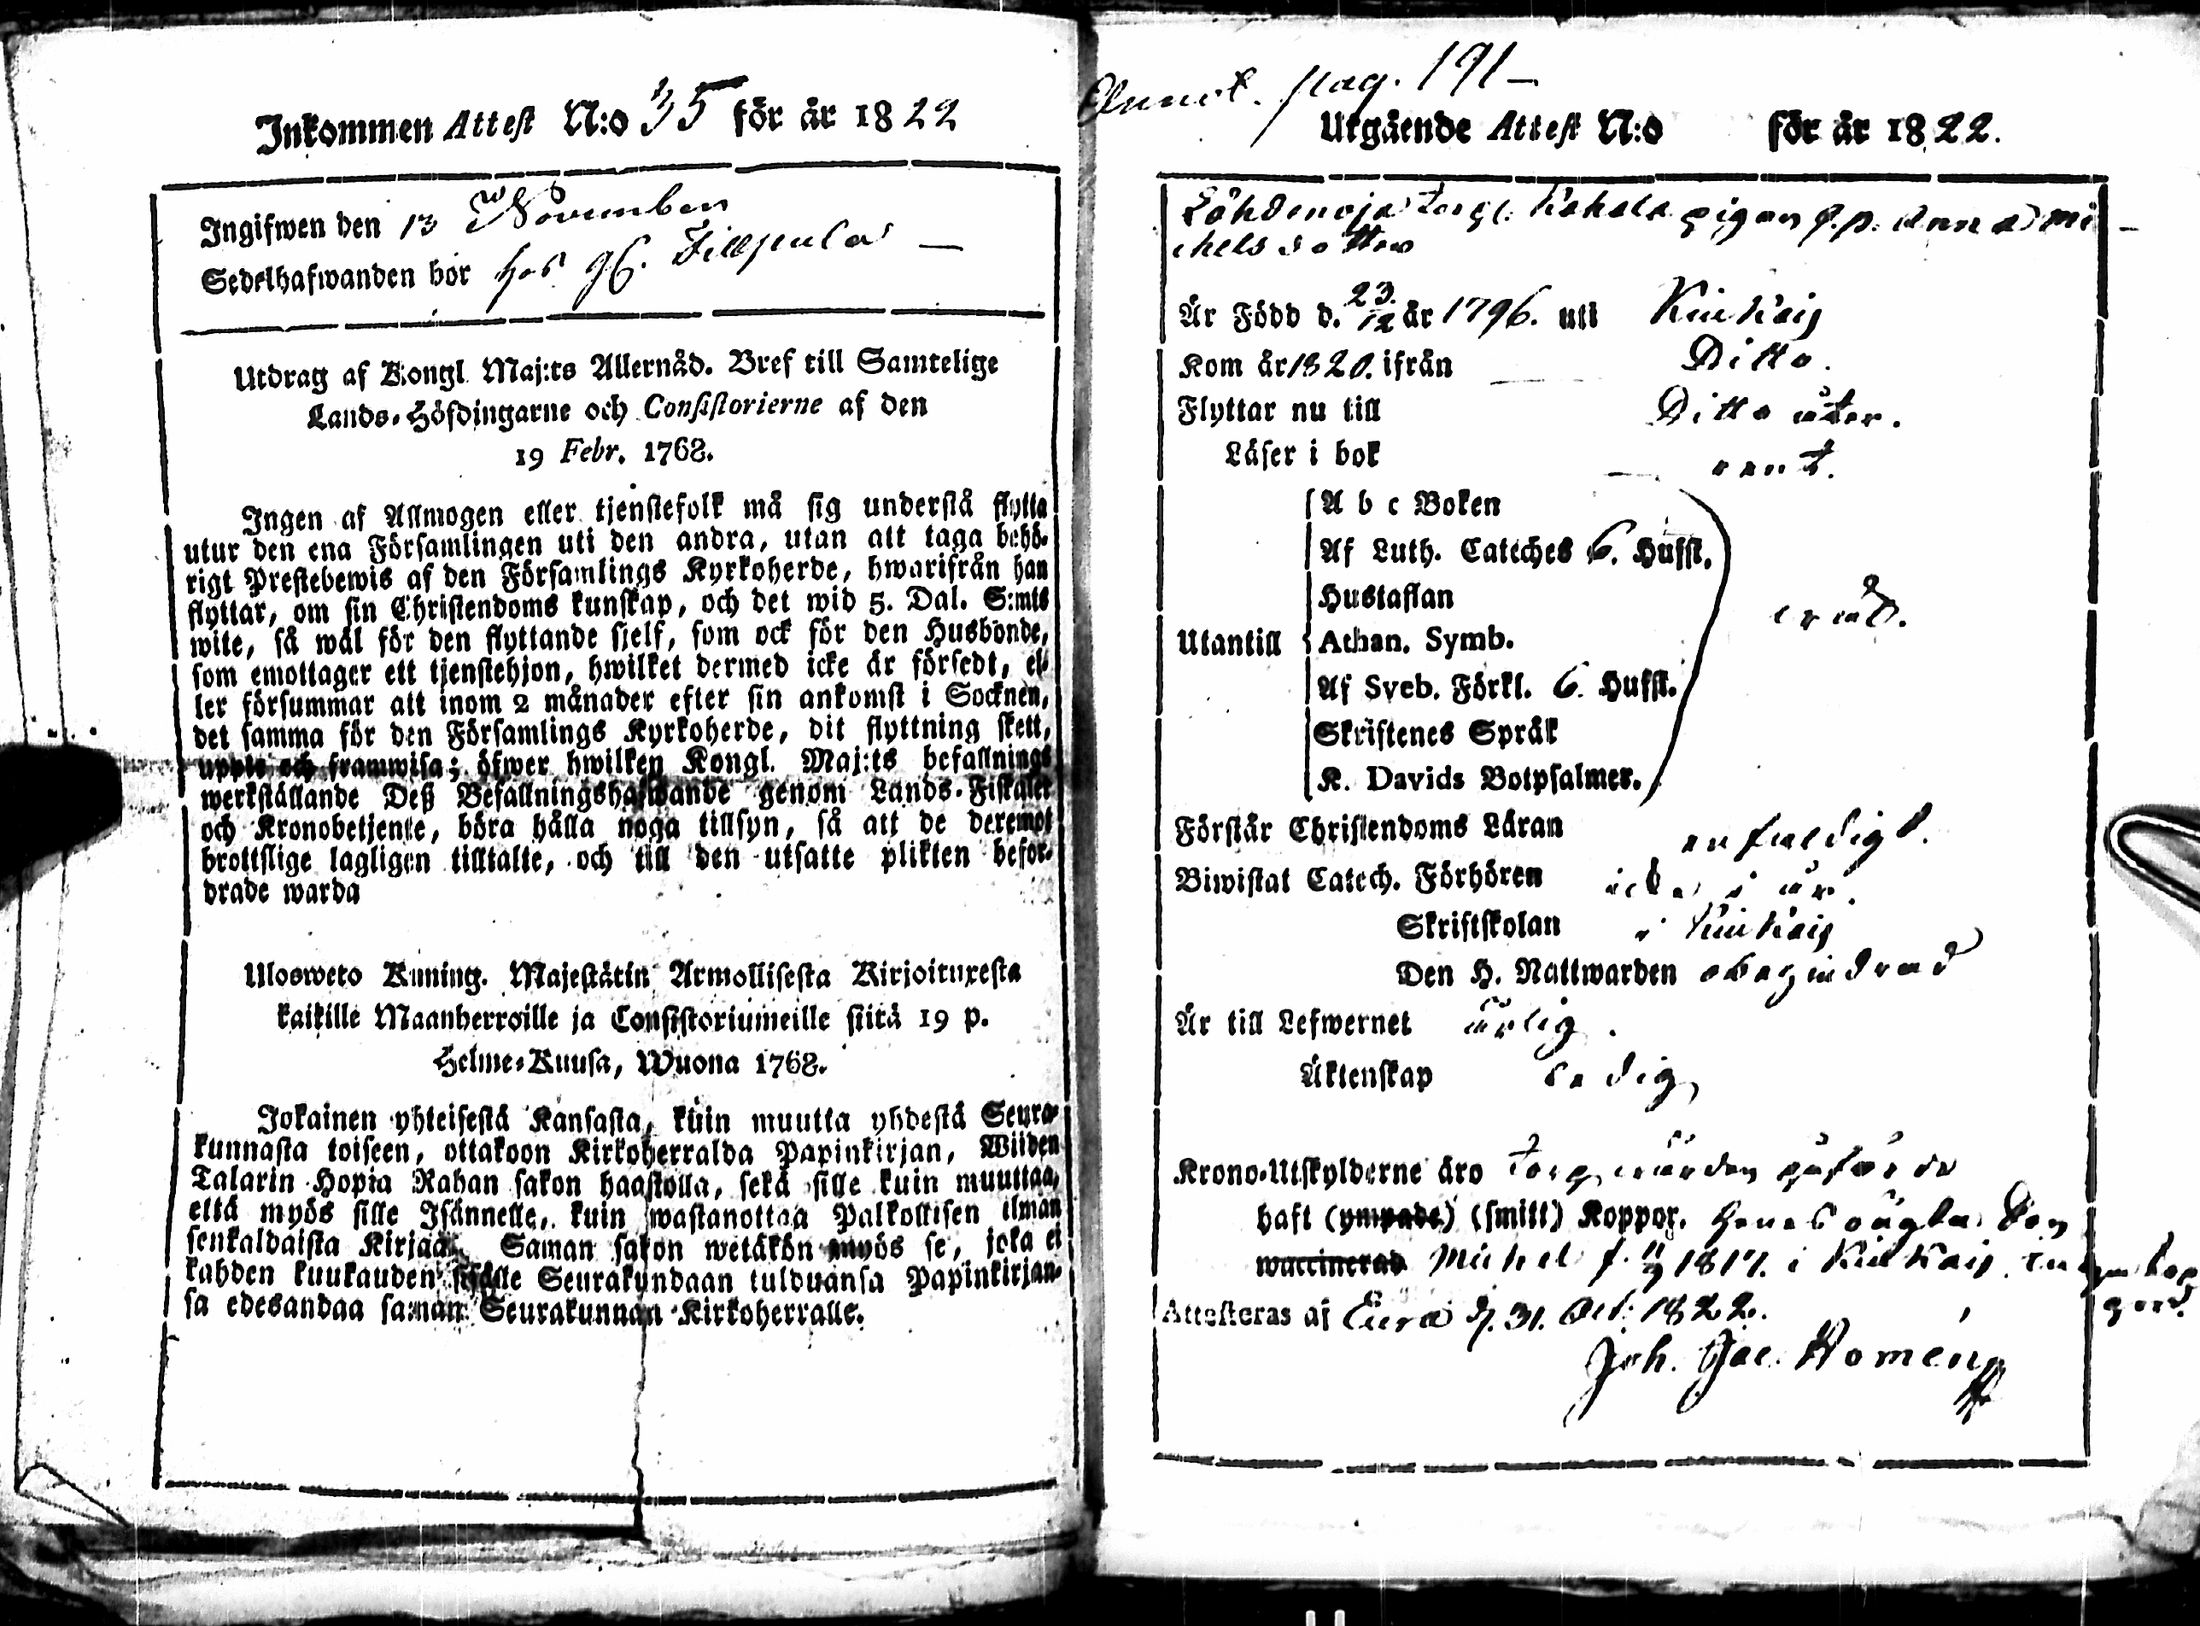 Inkommen Attest N:o 35 för år 1822
Ingifwen den 13 November
Sedelhafwanden bor hos
Utdrag af Kongl. Maj:ts Allernåd. Bref till Samtelige
Lands-Höfdingarne och Consistorierne af den
19 Febr. 1768.
Ingen af Allmogen eller tjenstefolk må sig understå flytta
utur den ena Församlingen uti den andra, utan att taga behö-
rigt Prestebewis af den Församlings Kyrkoherde, hwarifrån han
flyttar, om sin Christendoms kunskap, och det wid 5. Dal. S:mts
wite, så wäl för den flyttande sjelf, som ock för den Husbonde,
som emottager ett tjenstehjon, hwilket dermed icke är försedt, el-
ler försummar att inom 2 månader efter sin ankomst i Socknen,
det samma för den Församlings Kyrkoherde, dit flyttning skett,
uppte och framwisa; öfwer hwilken Kongl. Maj:ts befallnings
werkställande Deß Befallningshafwande genom Lands-Fiskaler
och Kronobetjente, böra hålla noga tillsyn, så att de deremot
brottslige lagligen tilltalte, och till den utsatte plikten befor-
drade warda
Ulosweto Kuning. Majestätin Armollisesta Kirjoituxesta
kaikille Maanherroille ja Consistoriumeille siitä 19 p.
Helme-Kuusa, Wuona 1768.
Jokainen yhteisestä Kansasta, kuin muutta yhdestä Seura-
kunnasta toiseen, ottakoon Kirkoherralda Papinkirjan, Wiiden
Talarin Hopia Rahan sakon haastolla, sekä sille kuin muuttaa,
että myös sille Isännelle, kuin wastanottaa Palkollisen ilman
senkaldaista Kirjaa. Saman sakon wetäkön myös se, joka ei
kahden kuukauden sisälle Seurakundaan tulduansa Papinkirjan-
sa edesandaa saman Seurakunnan Kirkoherralle.
Annot. pag. 191
Utgående Attest N:o för år 1822.
pigan Anna Mi-
chelsdotter
Är Född d. 23/12 år 1796. uti Kiukais
Kom år 1820. ifrån Ditto.
Flyttar nu till Ditto åter.
Läser i bok rent.
A b c Boken
Af Luth. Cateches 6. Hufst.
Hustaflan
Utantill Athan. Symb.
Af Sveb. Förkl. 6. Hufst.
Skriftenes Språk
K. Davids Botpsalmer.
Förstår Christendoms Läran enfaldigt.
Biwistat Catech. Förhören icke i år.
Skriftskolan i Kiukais
Den H. Nattwarden obehindrad
Är till Lefwernet ärlig.
Äktenskap ledig
Krono-Utskylderne äro
haft (ympade) (smitt) Koppor. Son
waccinerad Michel f. 1817. i Kiukais
Attesteras af Eura d. 31. Oct. 1822.
Joh. Jac. Homén